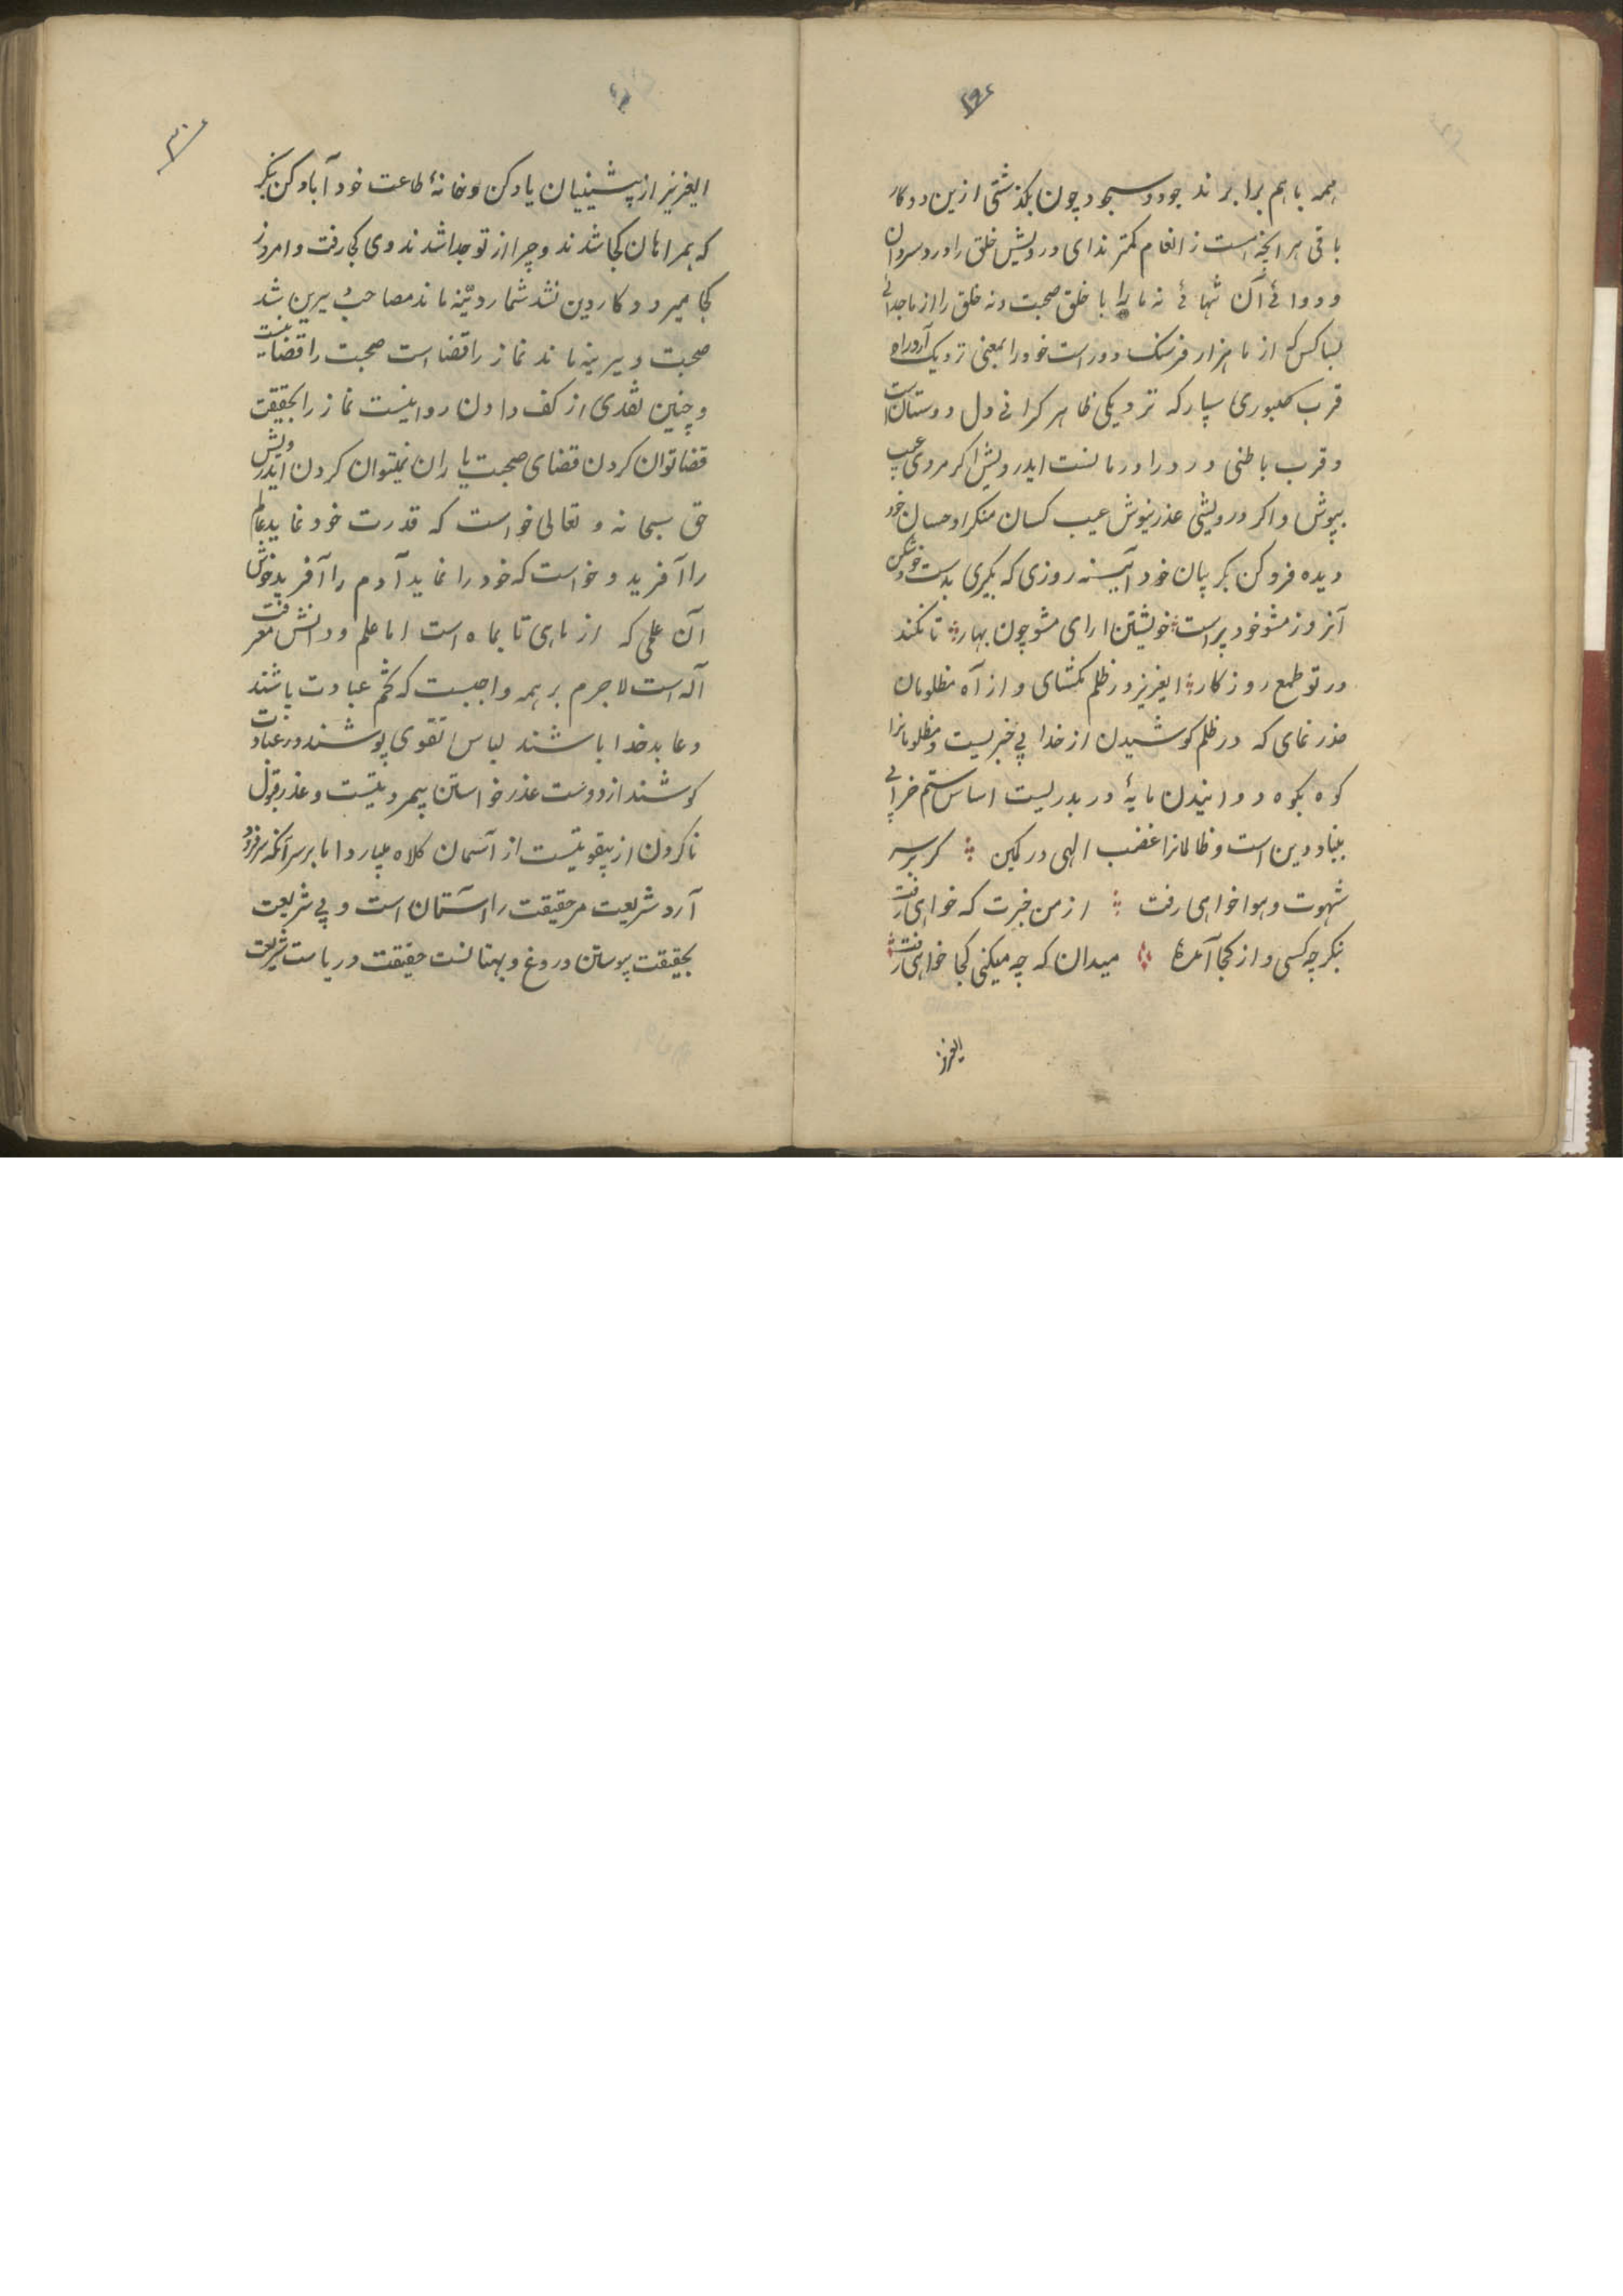 ۲۹۲
همه با هم برابرند جود و سجود چون بگذشتی ازین دو کار
باقی هر آنچه هست ز انعام کمترند ای درویش خلق را درد سردان
و دوائی آن تنهائی نه ما را با خلق صحبت و نه خلق را از ما جدائی
بسا کس که از ما هزار فرسنک دور است خود را بمعنی نزدیک آرد راه
قرب صبوری سپار که نزدیکی ظاهر کرانی دل دوستان است
و قرب باطنی درد را درمانست ایدرویش اکر مردی عیب
بپوش و اکر درویشی عذر نیوش عیب کسان منکر و احسان خود
دیده فرو کن بکریبان خود آیینه روزی که بکیری بدست خود شکن
آنروز مشو خود پرست خویشتن ارای مشو چون بهار تا نکند
در تو طمع روزکار ایعزیز در ظلم مکشای و از آه مظلومان
حذر نمای که در ظلم کوشیدن از خدا بی خبریست و مظلومانرا
کوه بکوه دوانیدن مایهٔ دربدریست اساس ستم خرابی
بنیاد دین است و ظالمانرا غضب الهی در کمین کر بر سر
شهوت و هوا خواهی رفت از من خبرت که خواهی رفت
بنکر چه کسی و از کجا آمدهٔ میدان که چه میکنی کجا خواهی رفت
ایعزیز
۳۰۰
ایعزیز از پیشینیان یاد کن و خانهٔ طاعت خود آباد کن بنکر
که همراهان کجا شدند و چرا از تو جدا شدند وی کجا رفت و امروز
کجا میرود کار دین نشد شمار دینه ماند مصاحب سیرین شد
صحبت دیرینه ماند نماز را قضا است صحبت را قضا نیست
و چنین نقدی از کف دادن روا نیست نماز را بحقیقت
قضا توان کردن قضای صحبت یاران نمیتوان کردن ایدرویش
حق سبحانه و تعالی خواست که قدرت خود نماید عالم
را آفرید و خواست که خود را نماید آدم را آفرید خوش
آن علمی که از ماهی تا بماه است اما علم و دانش معرفت
آله است لاجرم بر همه واجبست که تخم عبادت پاشند
و عابد خدا باشند لباس تقوی پوشند و در عبادت
کوشند از دوست عذر خواستن بیمردیتیست و عذر قبول
ناکردن از بیقوتیست از آسمان کلاه میبارد اما بر سر آنکه سر فرود
آرد شریعت مر حقیقت را آستان است و بی شریعت
بحقیقت پیوستن دروغ و بهتانست حقیقت دریاست شریعت